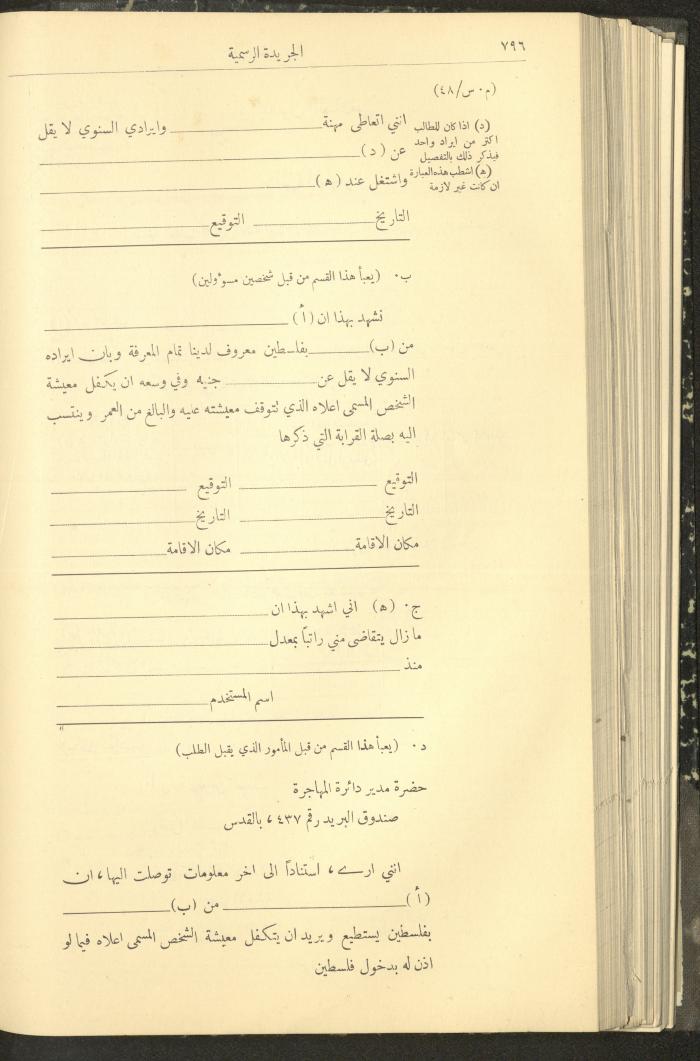 ٧٩٦
الجريدة الرسمية
(م٠س/٤٨)
(د) اذا كان للطالب
اكثر من ايراد واحد
فيذكر ذلك بالتفصيل
(ﻫ) اشطب هذه العبارة
ان كانت غير لازمة
انني اتعاطى مهنة ــــــــــ وايرادي السنوي لا يقل
عن (د) ــــــــــ
واشتغل عند (ﻫ) ــــــــــ
التاريخ ــــــــــ التوقيع ــــــــــ
ب٠ (يعبأ هذا القسم من قبل شخصين مسوءولين)
نشهد بهذا ان (أ) ــــــــــ
من (ب) ــــــــــ بفلسطين معروف لدينا تمام المعرفة وبان ايراده
السنوي لا يقل عن ــــــــــ جنيه وفي وسعه ان يكفل معيشة
الشخص المسمى اعلاه الذي تتوقف معيشته عليه والبالغ من العمر وينتسب
اليه بصلة القرابة التي ذكرها
التوقيع ــــــــــ التوقيع ــــــــــ
التاريخ ــــــــــ التاريخ ــــــــــ
مكان الاقامة ــــــــــ مكان الاقامة ــــــــــ
ج٠ (ﻫ) اني اشهد بهذا ان ــــــــــ
ما زال يتقاضى مني راتباً بمعدل ــــــــــ
منذ ــــــــــ
اسم المستخدم ــــــــــ
د٠ (يعبأ هذا القسم من قبل المأمور الذي يقبل الطلب)
حضرة مدير دائرة المهاجرة
صندوق البريد رقم ٤٣٧، بالقدس
انني ارى، استناداً الى اخر معلومات توصلت اليها، ان
(أ) ــــــــــ من (ب) ــــــــــ
بفلسطين يستطيع ويريد ان يتكفل معيشة الشخص المسمى اعلاه فيما لو
اذن له بدخول فلسطين